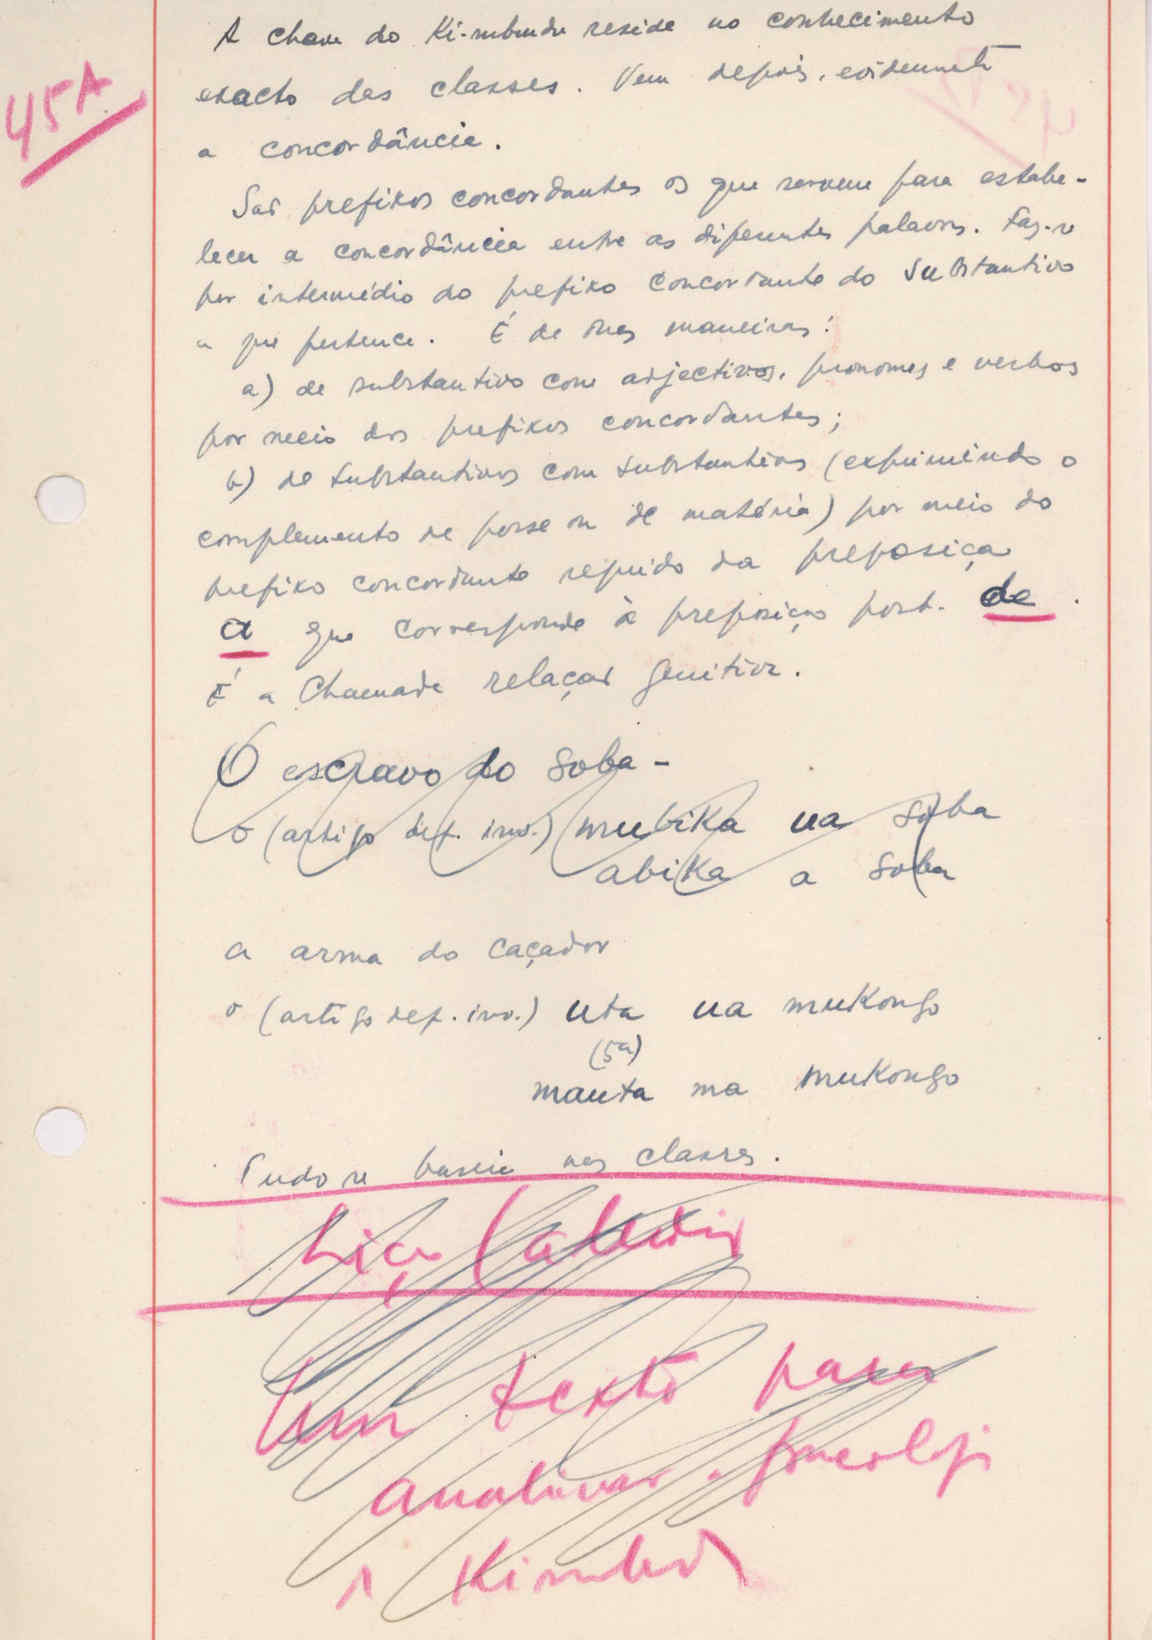 45A
A chave do Ki-mbundu reside no conhecimento
exacto das classes. Vem depois, evidentemente
a concordância.
São prefixos concordantes os que servem para estabe-
lecer a concordância entre as diferentes palavras. Faz-se
por intermédio do prefixo concordante do substantivo
a que pertence. É de duas maneiras:
a) de substantivo com adjectivos, pronomes e verbos
por meio dos prefixos concordantes;
b) de substantivos com substantivos (exprimindo o
complemento de posse ou de matéria) por meio do
prefixo concordante seguido da preposição
a que corresponde à preposição port. de.
É a chamada relação genitiva.
O escravo do soba -
o (artigo def. inv.) mubika ua soba
abika a soba
a arma do caçador
o (artigo def. inv.) uta ua mukongo
(5ª)
mauta ma mukongo
Tudo se baseia nas classes.
Um texto para
analisar a
Kimbd